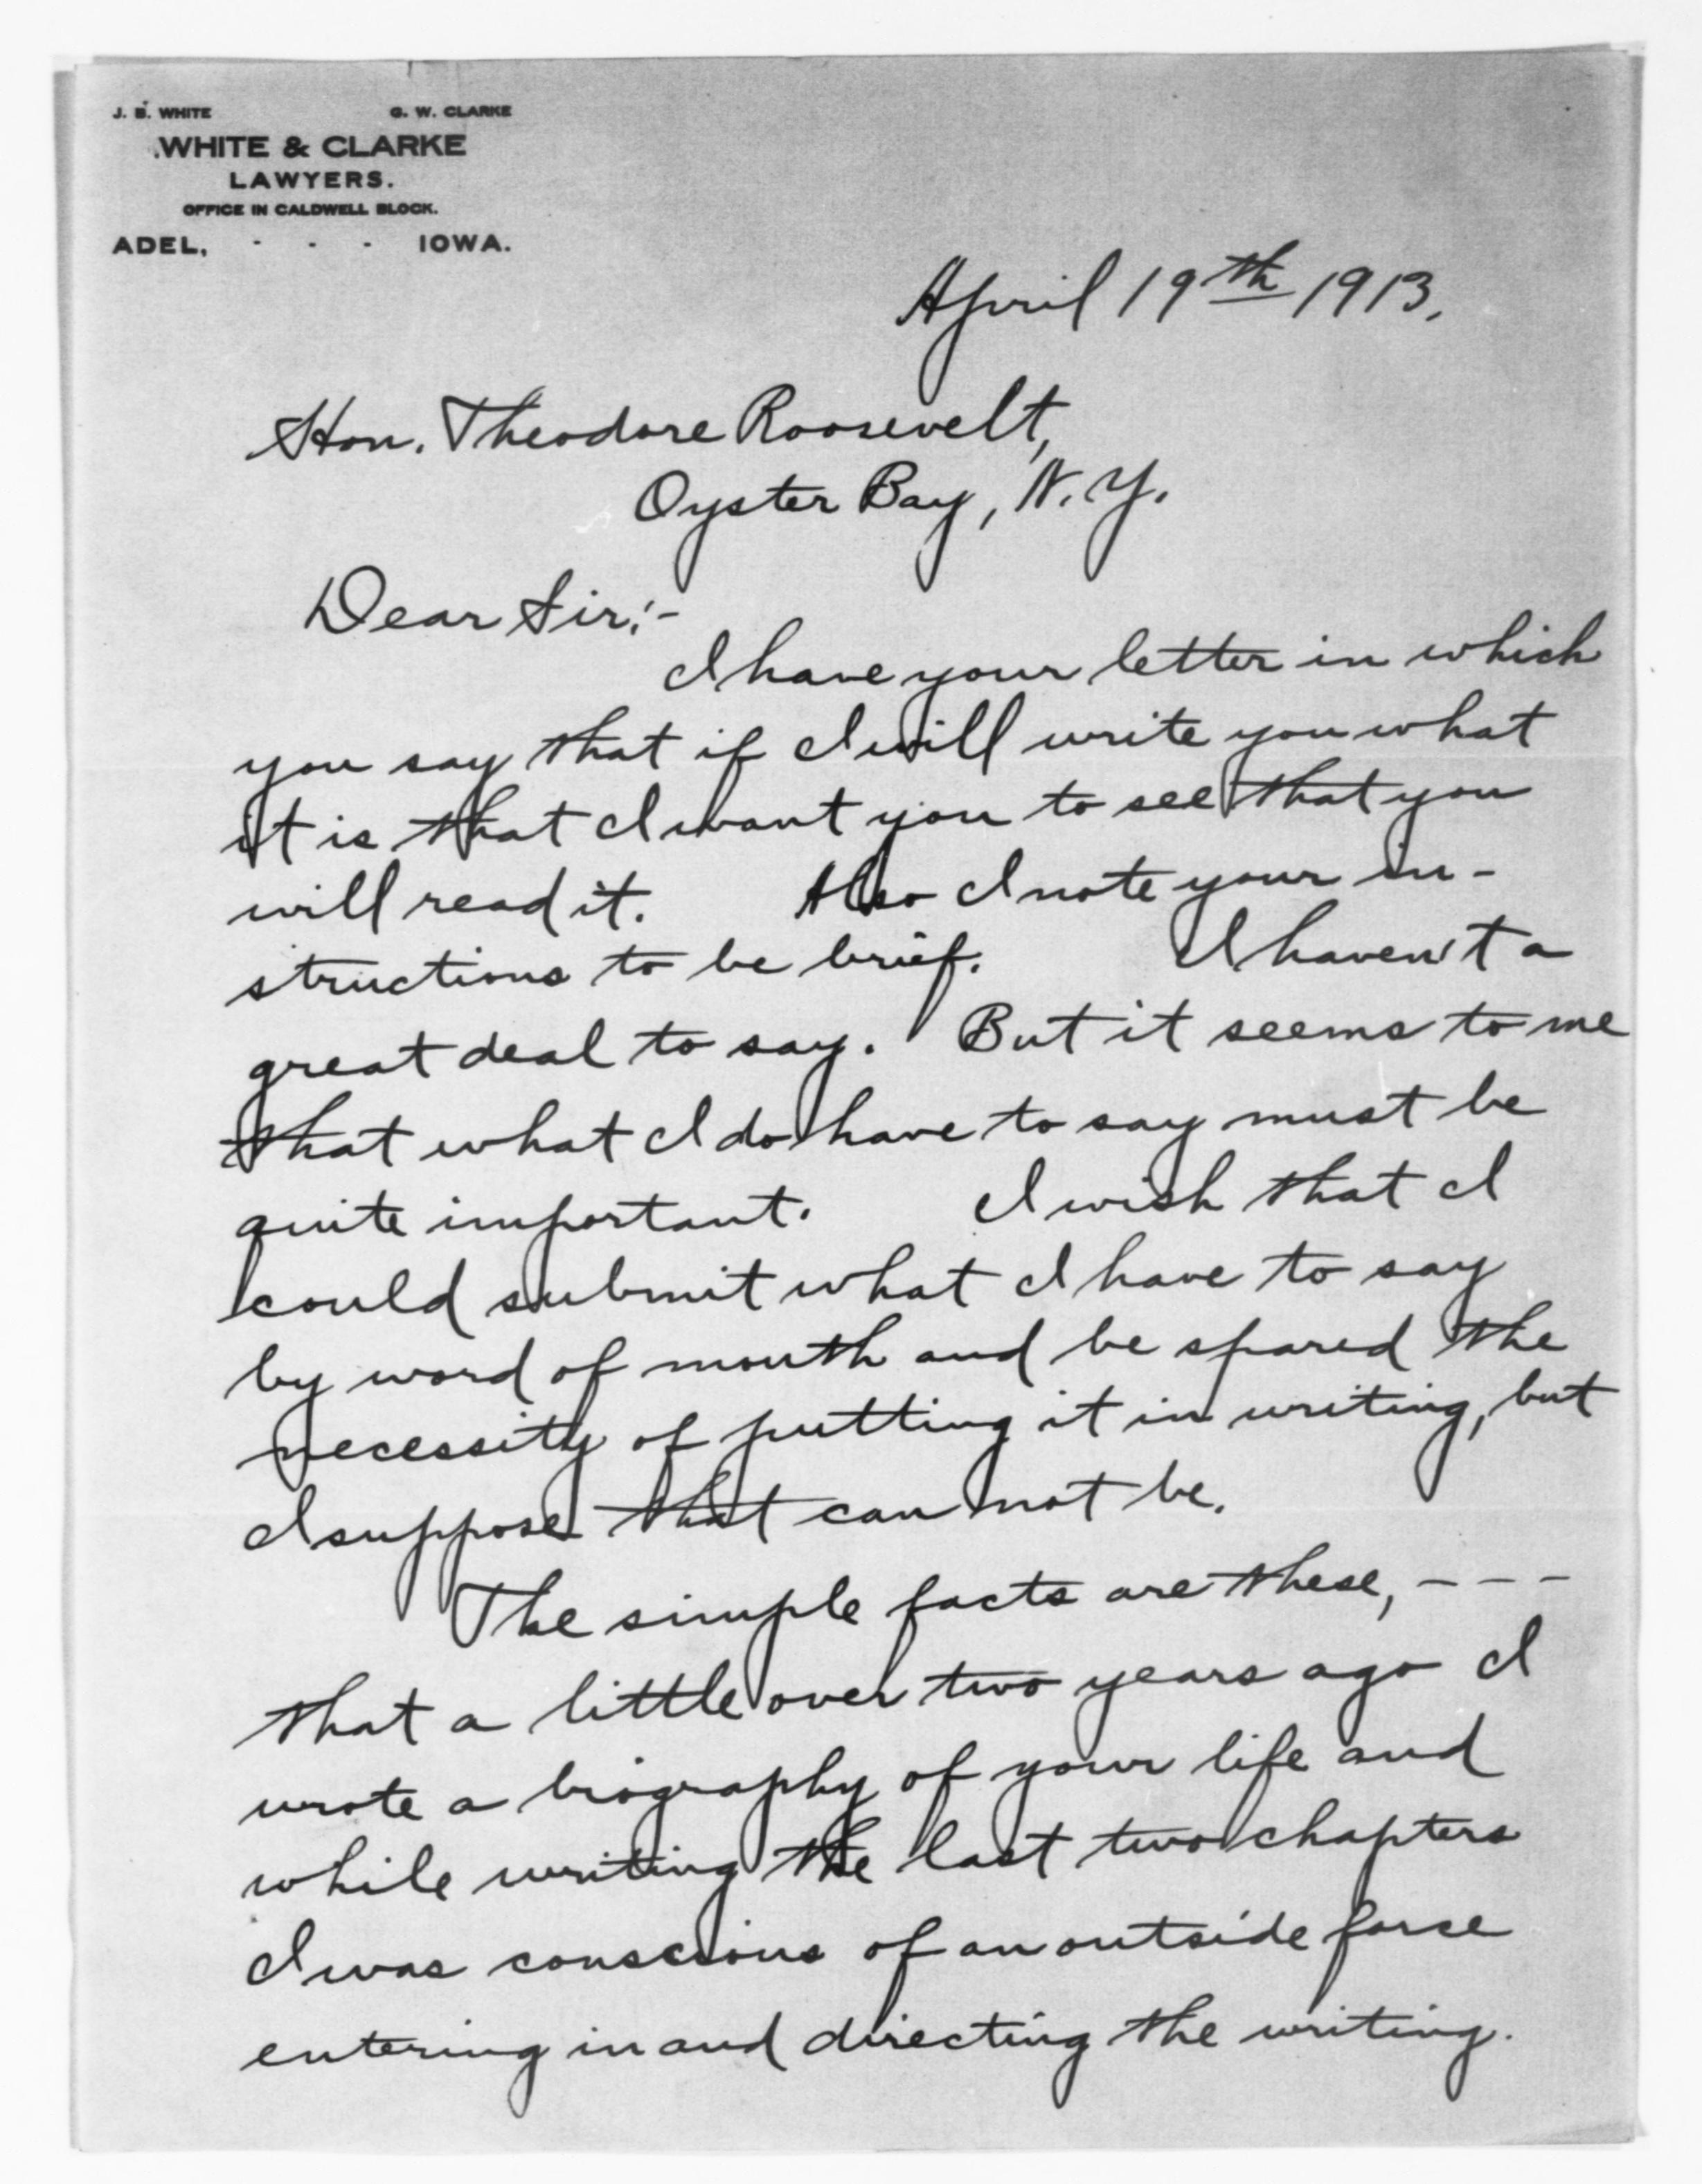 J. B. WHITE G. W. CLARKE
WHITE & CLARKE
LAWYERS.
OFFICE IN CALDWELL BLOCK.
ADEL, - - - IOWA.
April 19th 1913.
Hon. Theodore Roosevelt,
Oyster Bay, N.Y.
Dear Sir:-
I have your letter in which
you say that if I will write you what
it is that I want you to see that you
will read it. Also I note your in-
structions to be brief. I haven't a
great deal to say. But it seems to me
that what I do have to say must be
quite important. I wish that I
could submit what I have to say
by word of mouth and be spared the
necessity of putting it in writing, but
I suppose that can not be.
The simple facts are these, - - -
that a little over two years ago I
wrote a biography of your life and
while writing the last two chapters
I was conscious of an outside force
entering in and directing the writing.